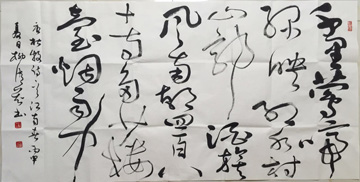 千里鶯啼
緑映红水村
山郭酒旗
风南朝四百八
十寺多少楼
臺烟雨中
唐杜牧诗江南春丙申
夏日书